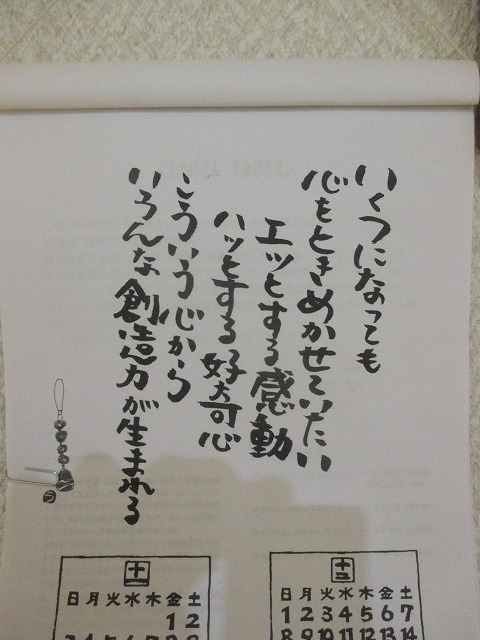 いくつになっても
心もときめかせていたい
エッとする感動
ハッとする好奇心
こういう心から
いろんな創造力が生まれる
十一
日 月 火 水 木 金 土
1 2
3 4 5 6 7 8 9
十二
日 月 火 水 木 金 土
1 2 3 4 5 6 7
8 9 10 11 12 13 14